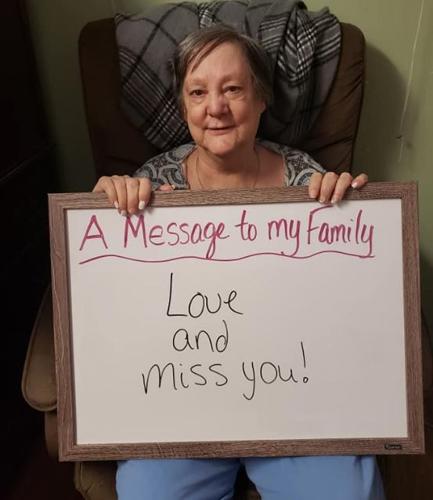 A Message to my Family
Love
and
miss you!